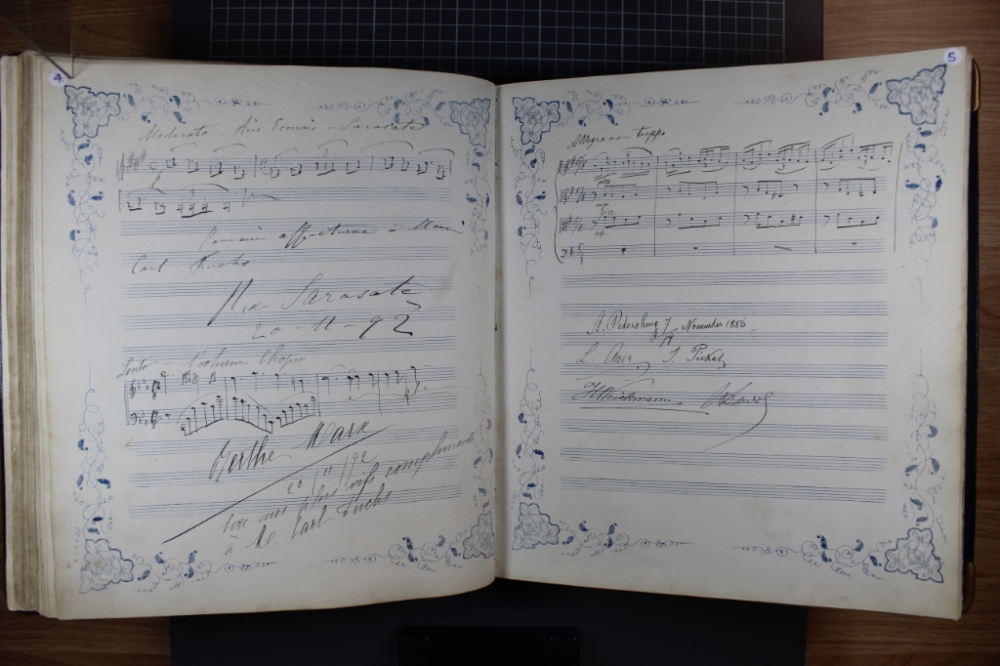 4
Moderato - Airs Ecossais - Sarasate
Souvenir affectueux à Monsieur
Carl Fuchs
Sarasate
20-11-92
Lento - Nocturne Chopin
Berthe Marx
20/11/92
avec mes plus vifs compliments
à M. Carl Fuchs
5
Allegro non troppo
St. Petersburg 7/19 November 1886
L. Auer J. Pickel